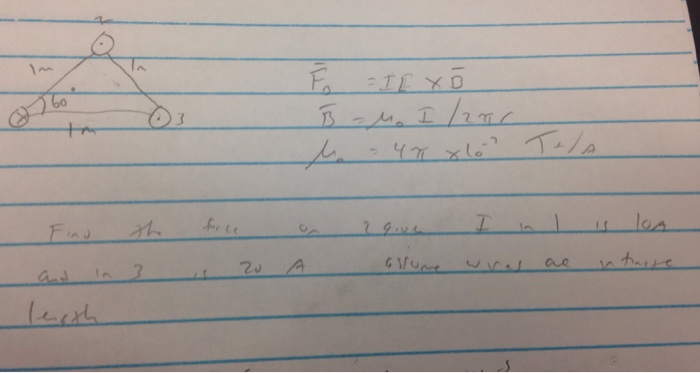 2
1m 1m
60°
3
1m
F̄₀ = I L̄ × B̄
B̄ = μ₀ I / 2πr
μ₀ = 4π ×10⁻⁷ Tm/A
Find the force on 2 given I in 1 is 10A
and in 3 is 20 A assume wires are infinite
length